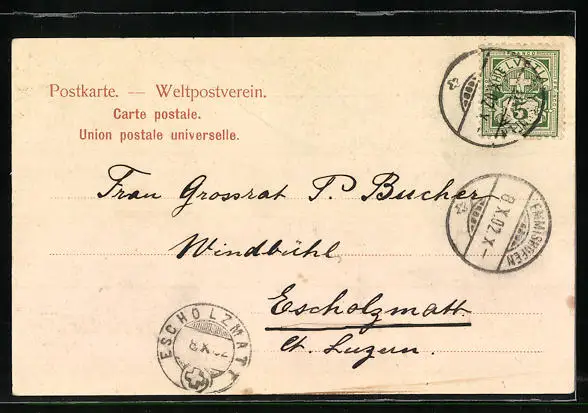 Postkarte. — Weltpostverein.
Carte postale.
Union postale universelle.
HELVETIA
5
Frau Grossrat P. Bucher
Windbühl
Escholzmatt
Ct. Luzern.
EMMISHOFEN
8.X.02.X–
ESCHOLZMATT
8.X.02